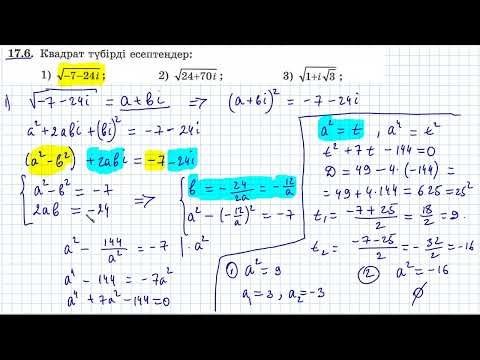 17.6. Квадрат түбірді есептеңдер:
1) √(-7-24i) ; 2) √(24+70i) ; 3) √(1+i√3) ;
1) √(-7-24i) = a+bi => (a+bi)² = -7-24i
a²+2abi+(bi)² = -7-24i
(a²-b²) +2abi = -7-24i
{ a²-b² = -7
2ab = -24
=> { b = -24/2a = -12/a
a²-(-12/a)² = -7
a² - 144/a² = -7 | ·a²
a⁴ - 144 = -7a²
a⁴+7a²-144=0
a² = t , a⁴ = t²
t²+7t-144=0
D = 49-4·(-144) =
= 49+4·144 = 625=25²
t₁ = (-7+25)/2 = 18/2 = 9.
t₂ = (-7-25)/2 = -32/2 = -16
① a² = 9
a₁=3 , a₂=-3
② a² = -16
∅